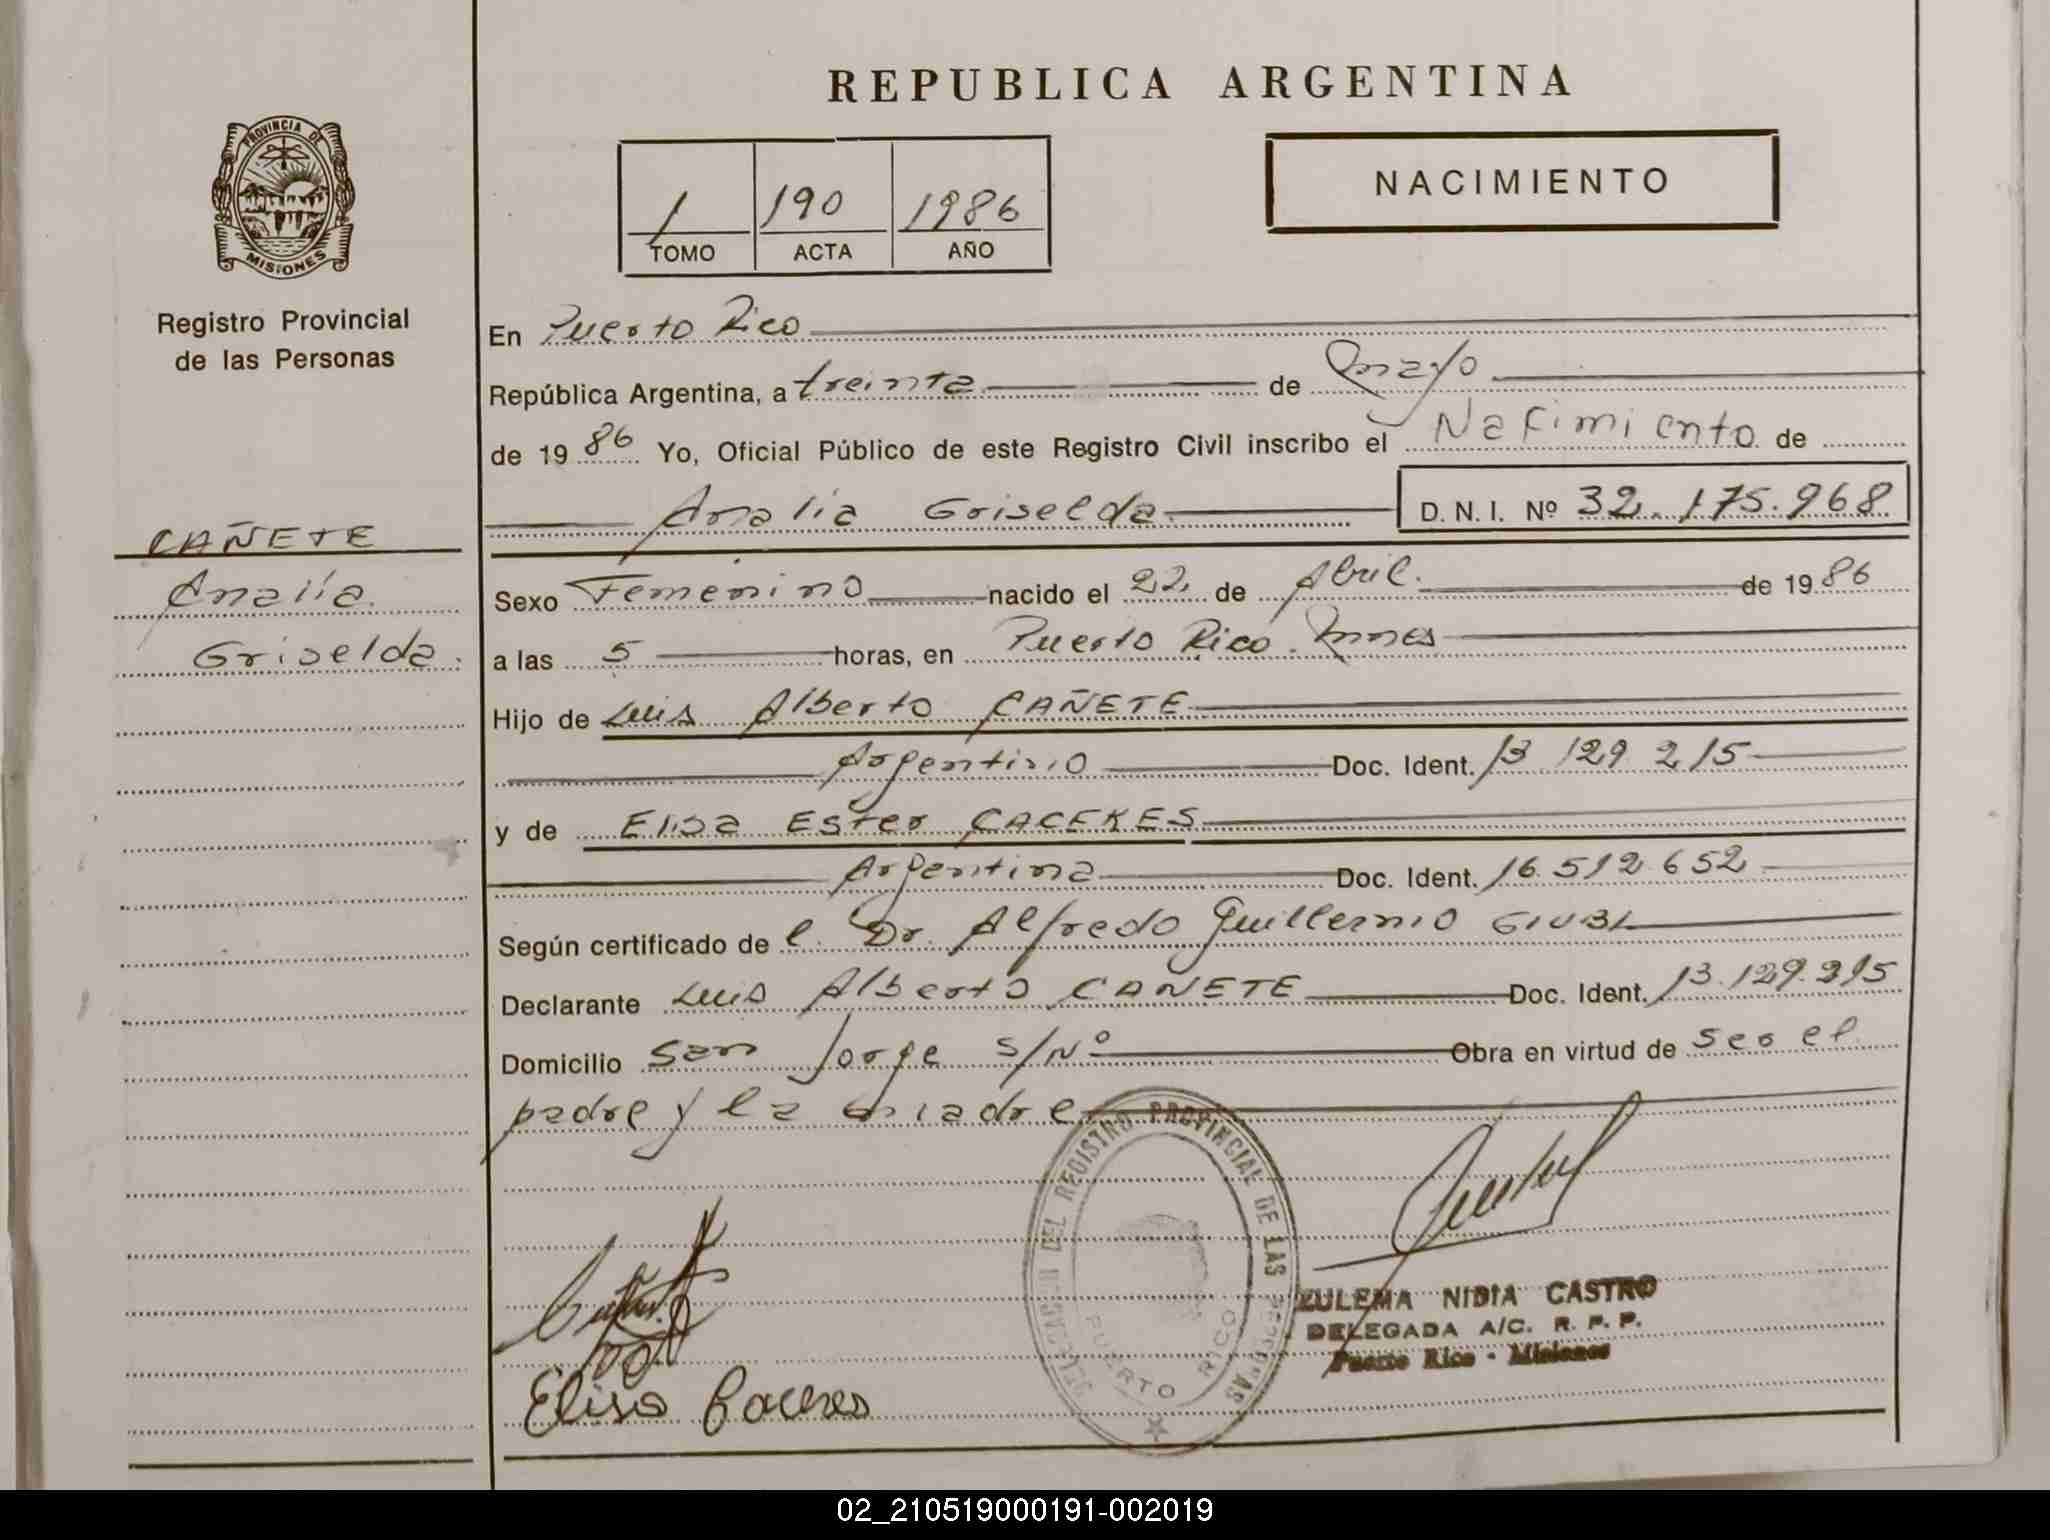 REPUBLICA ARGENTINA
PROVINCIA DE
MISIONES
Registro Provincial
de las Personas
1 190 1986
TOMO ACTA AÑO
NACIMIENTO
En Puerto Rico
República Argentina, a treinta de mayo
de 19 86 Yo, Oficial Público de este Registro Civil inscribo el Nacimiento de
Analía Griselda D. N. I. Nº 32.175.968
CAÑETE
Analía
Griselda.
Sexo Femenino nacido el 22 de Abril. de 19 86
a las 5 horas, en Puerto Rico. Mnes
Hijo de Luis Alberto CAÑETE
Argentino Doc. Ident. 13 129 215
y de Elisa Ester CACERES
Argentina Doc. Ident. 16.512.652
Según certificado de l. Dr. Alfredo Guillermo
Declarante Luis Alberto CAÑETE Doc. Ident. 13.129.215
Domicilio San Jorge S/Nº Obra en virtud de ser el
padre y la madre
DELEGACION DEL REGISTRO PROVINCIAL DE LAS PERSONAS
PUERTO RICO
ZULEMA NIDIA CASTRO
DELEGADA A/C. R. P. P.
Puerto Rico - Misiones
Elisa Caceres
02_210519000191-002019